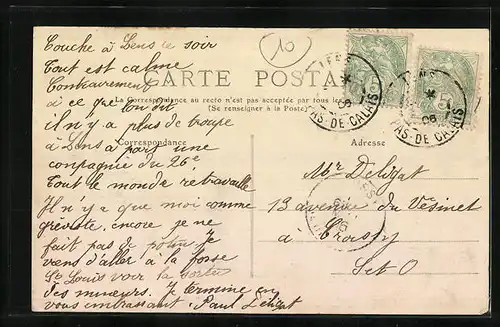 Couche à Lens ce soir
Tout est calme
Contrairement
à ce que l'on dit
il n'y a plus de troupe
à Lens à part une
compagnie du 26e
Tout le monde retravaille
Il n'y a que moi comme
gréviste, encore je ne
fait pas de
viens d'aller à la fosse
St Louis voir la sortie
des mineurs. Je termine en
vous embrassant. Paul Delizat
10
CARTE POSTALE
La Correspondance au recto n'est pas acceptée par tous les
(Se renseigner à la Poste)
Correspondance
Adresse
LENS
06
PAS-DE-CALAIS
5
LENS
06
PAS-DE-CALAIS
5
Mr Delizat
13 avenue du Vésinet
a Croissy
S et O